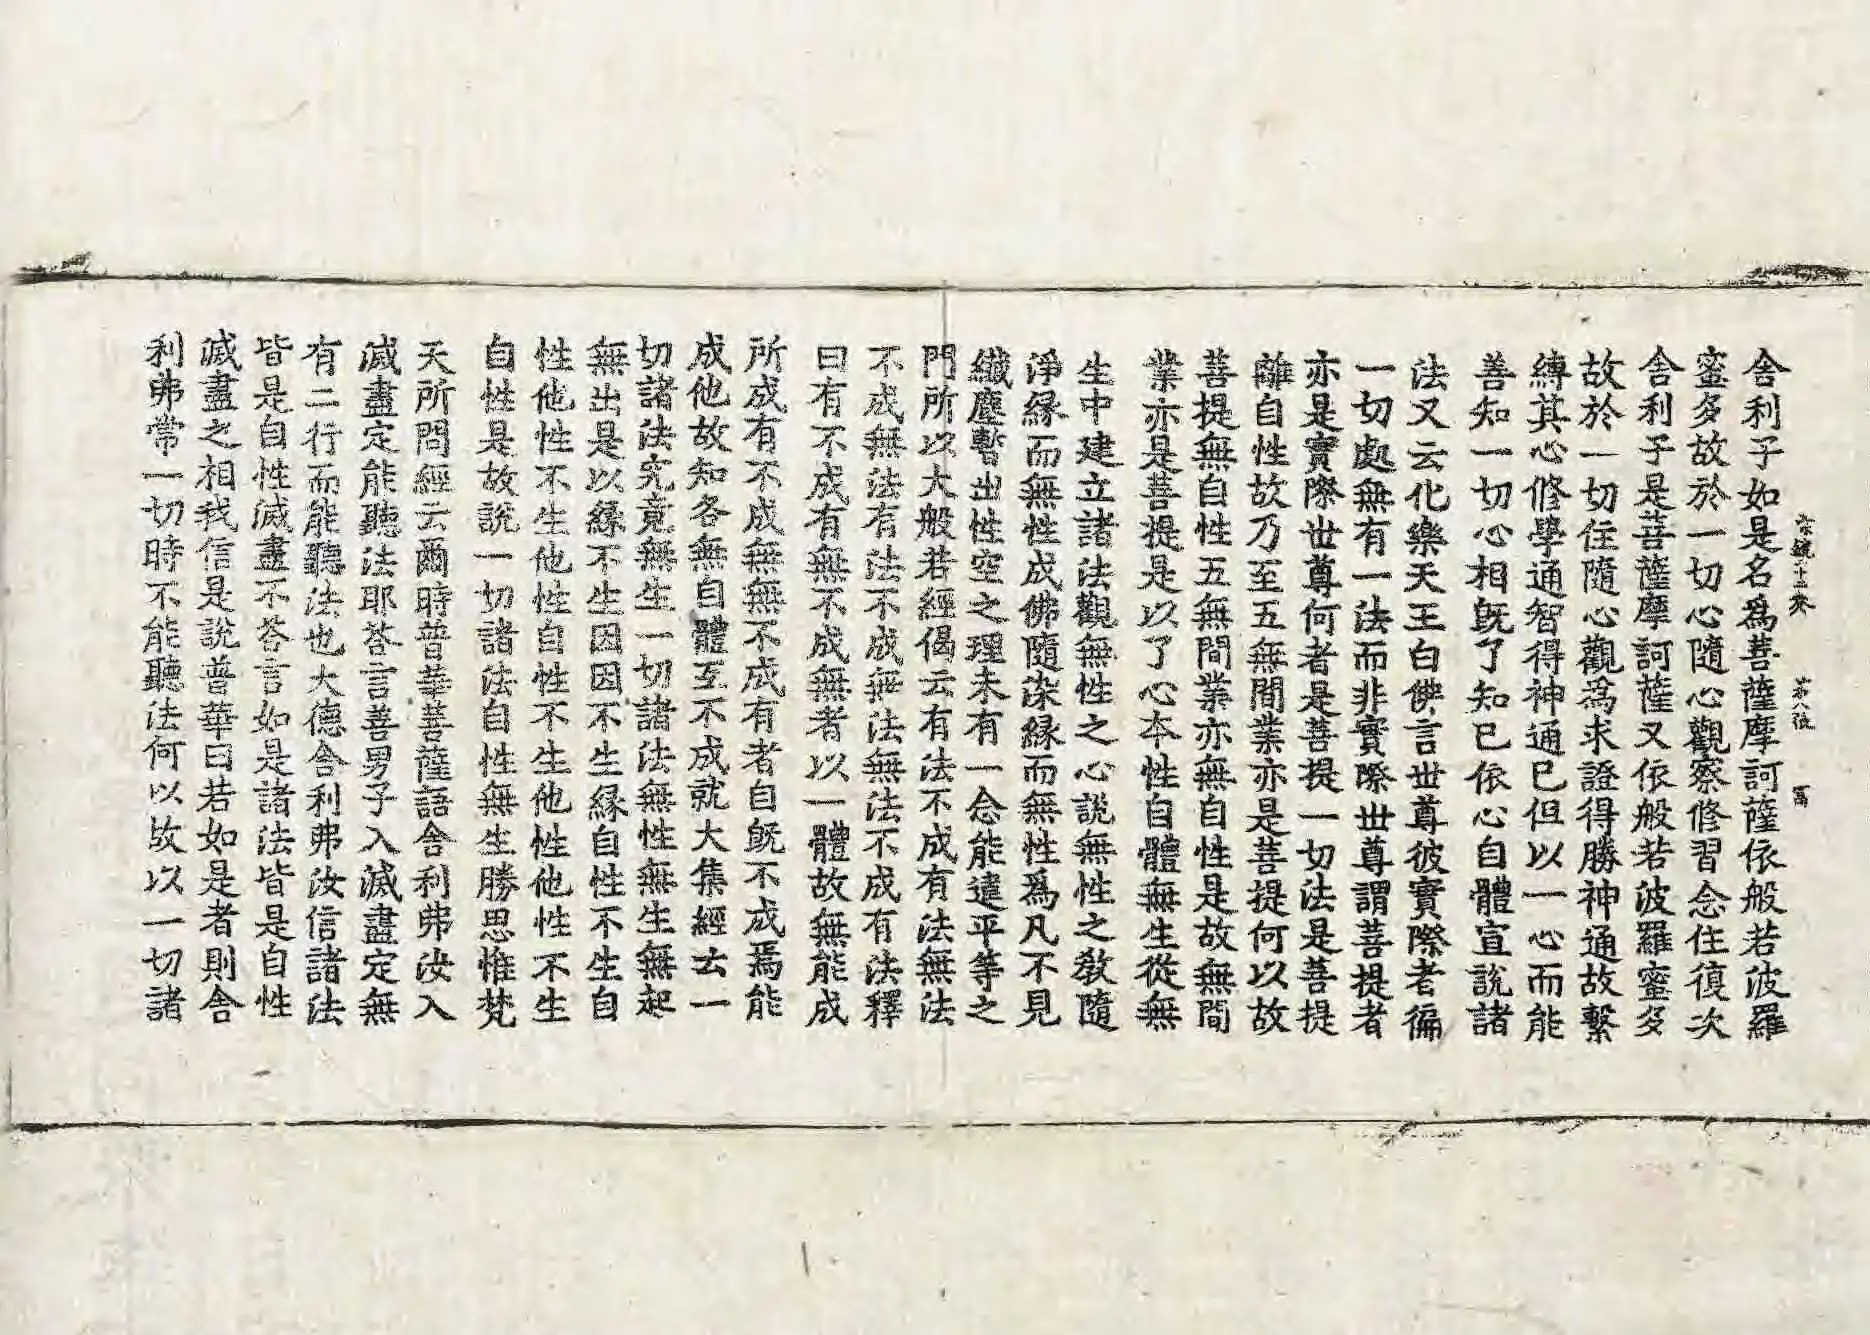 舍利子如是名爲菩薩摩訶薩依般若波羅
蜜多故於一切心隨心觀察修習念住復次
舍利子是菩薩摩訶薩又依般若波羅蜜多
故於一切住隨心觀爲求證得勝神通故繫
縛其心修學通智得神通已但以一心而能
善知一切心相旣了知已依心自體宣說諸
法又云化樂天王白佛言世尊彼實際者徧
一切處無有一法而非實際世尊謂菩提者
亦是實際世尊何者是菩提一切法是菩提
離自性故乃至五無間業亦是菩提何以故
菩提無自性五無間業亦無自性是故無間
業亦是菩提是以了心本性自體無生從無
生中建立諸法觀無性之心說無性之敎隨
淨緣而無性成佛隨染緣而無性爲凡不見
纖塵暫出性空之理未有一念能違平等之
門所以大般若經偈云有法不成有法無法
不成無法有法不成無法無法不成有法釋
曰有不成有無不成無者以一體故無能成
所成有不成無無不成有者自旣不成焉能
成他故知各無自體互不成就大集經云一
切諸法究竟無生一切諸法無性無生無起
無出是以緣不生因因不生緣自性不生自
性他性不生他性自性不生他性他性不生
自性是故說一切諸法自性無生勝思惟梵
天所問經云爾時普華菩薩語舍利弗汝入
滅盡定能聽法耶荅言善男子入滅盡定無
有二行而能聽法也大德舍利弗汝信諸法
皆是自性滅盡不荅言如是諸法皆是自性
滅盡之相我信是說普華曰若如是者則舍
利弗常一切時不能聽法何以故以一切諸